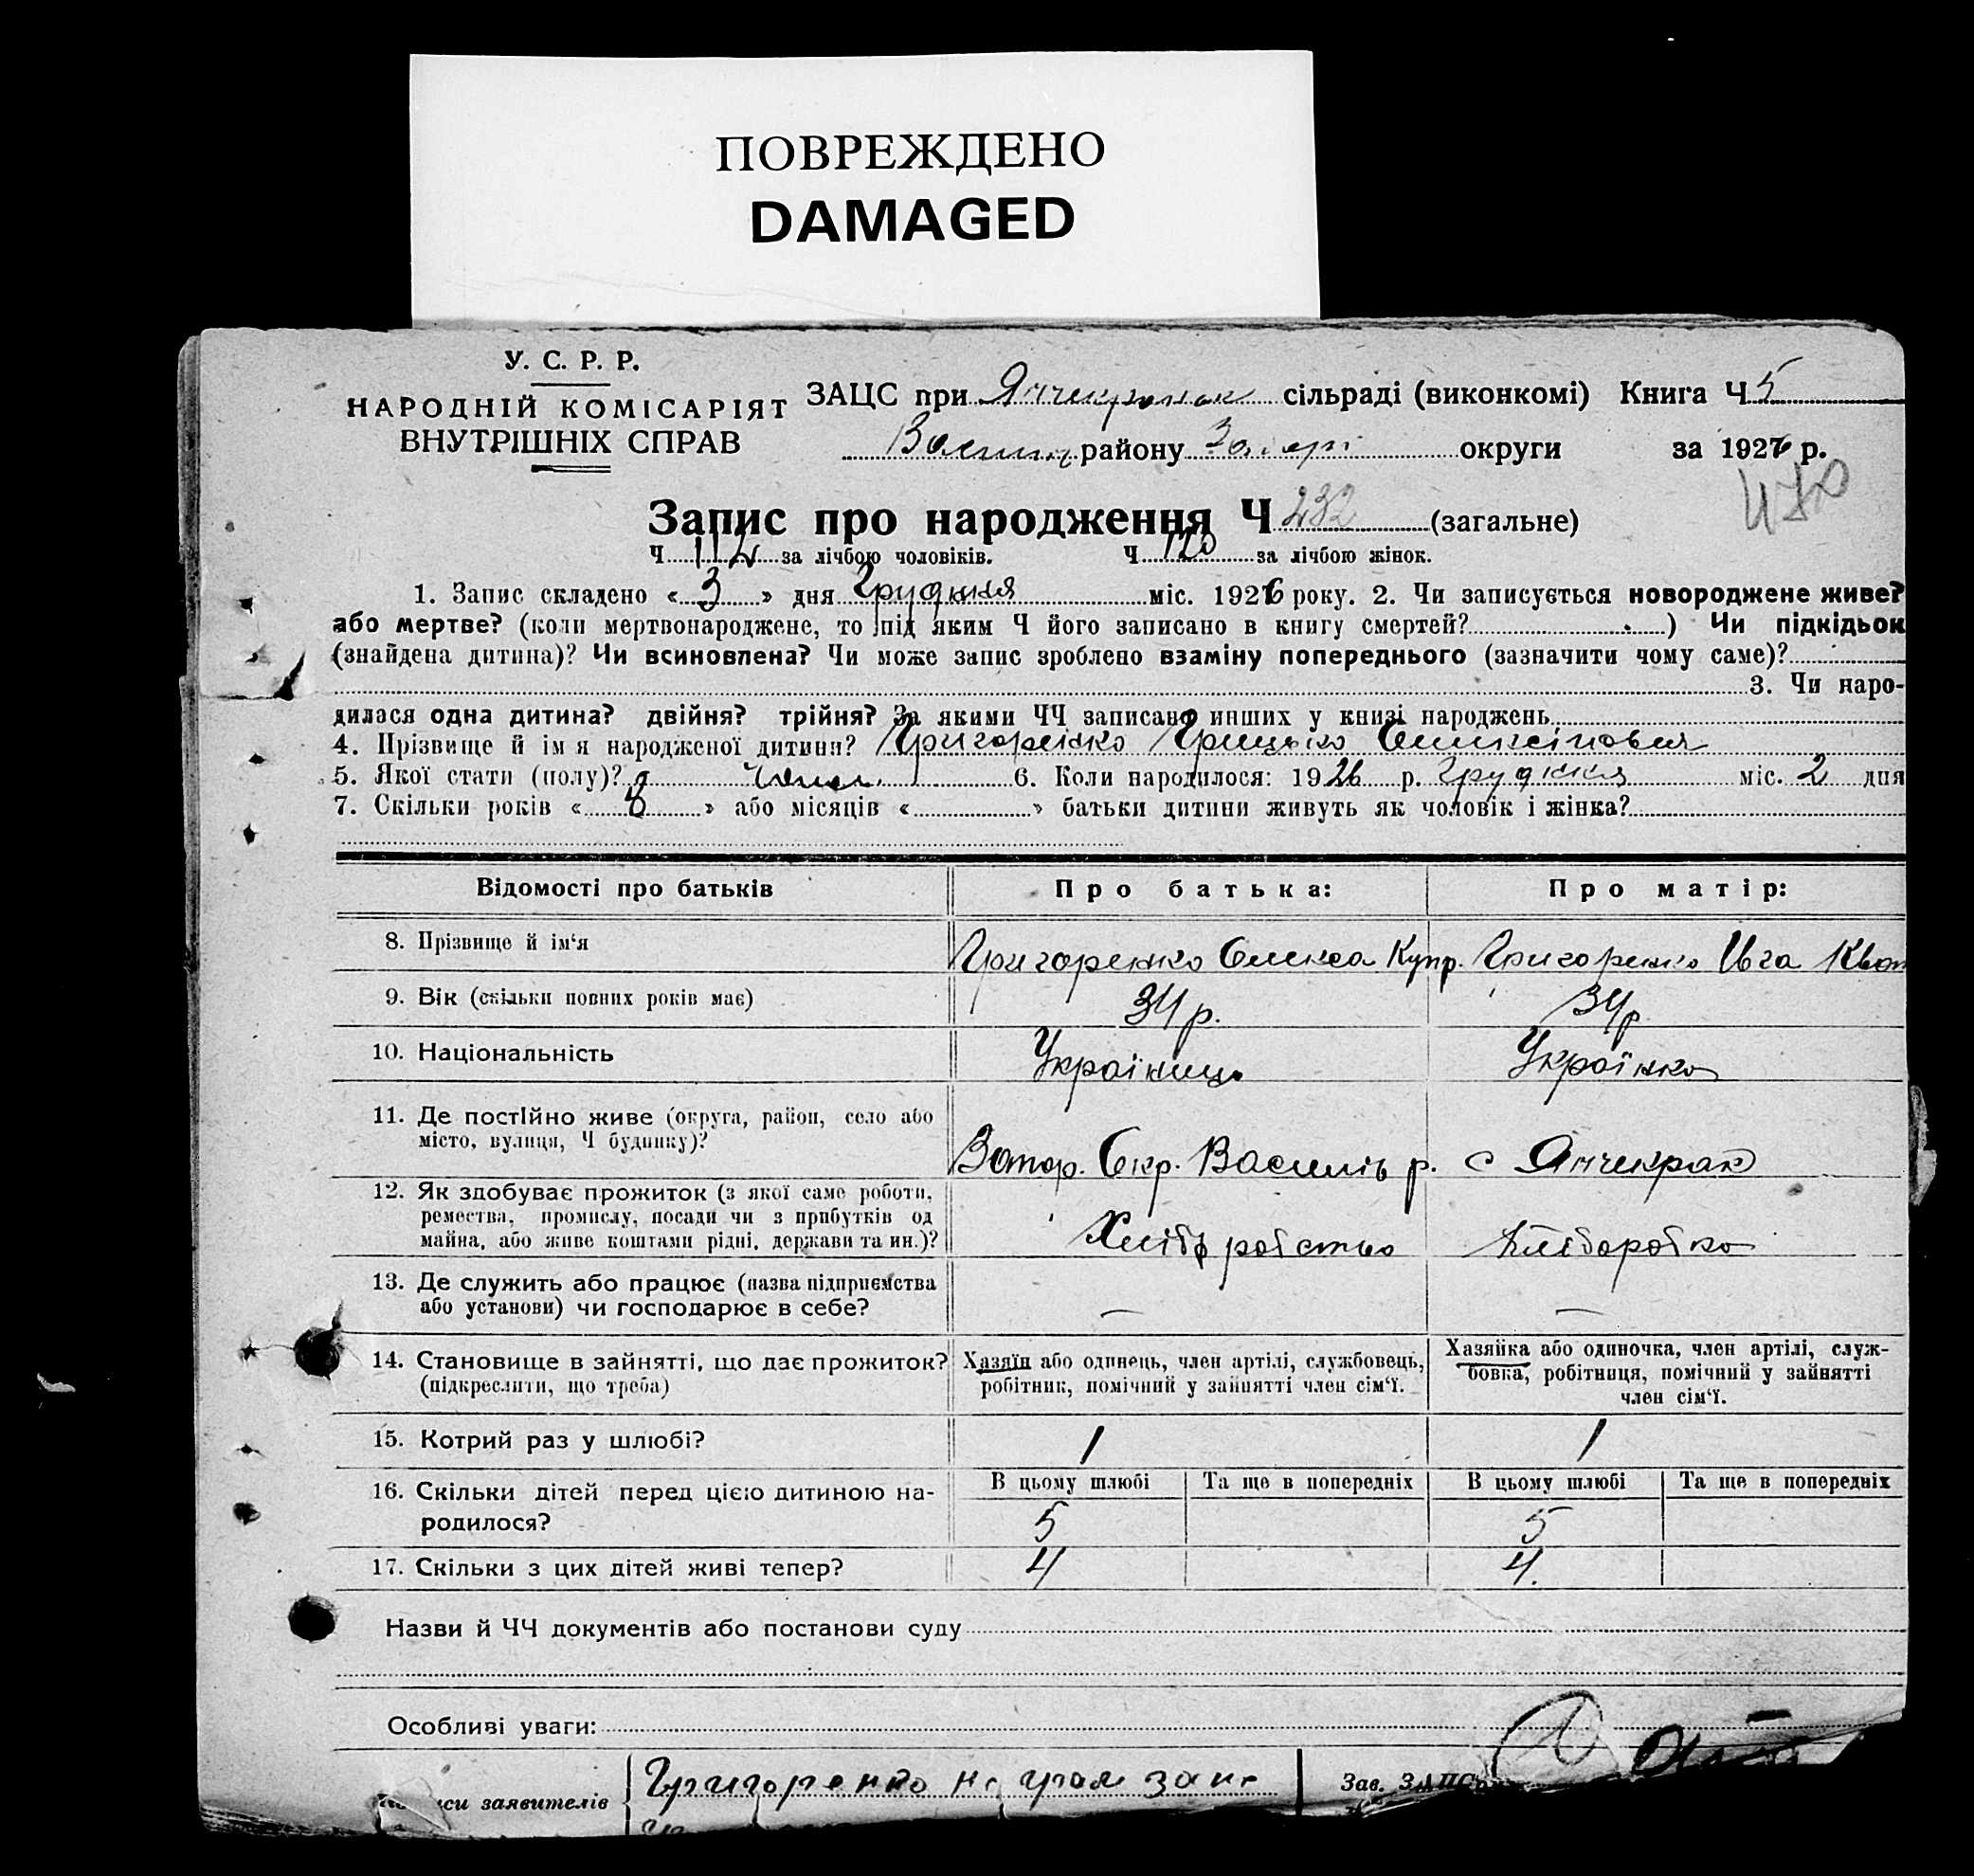 ПОВРЕЖДЕНО
DAMAGED
У. С. Р. Р.
НАРОДНІЙ КОМІСАРІЯТ
ВНУТРІШНІХ СПРАВ
ЗАЦС при Янчекрацьк сільраді (виконкомі) Книга Ч 5
району округи за 1926 р.
Запис про народження Ч 232 (загальне)
Ч 112 за лічбою чоловіків. Ч 120 за лічбою жінок.
1. Запис складено « 3 » дня Грудня міс. 1926 року. 2. Чи записується новороджене живе?
або мертве? (коли мертвонароджене, то під яким Ч його записано в книгу смертей? ) Чи підкідьок
(знайдена дитина)? Чи всиновлена? Чи може запис зроблено взаміну попереднього (зазначити чому саме)?
3. Чи наро-
дилася одна дитина? двійня? трійня? За якими ЧЧ записано инших у книзі народжень
4. Прізвище й ім'я народженої дитини? Григоренко Грицько Олексійович
5. Якої стати (полу)? 6. Коли народилося: 1926 р. Грудня міс. 2 дня
7. Скільки років « 8 » або місяців « » батьки дитини живуть як чоловік і жінка?
Відомості про батьків
Про батька:
Про матір:
8. Прізвище й ім'я
Григоренко Олекса Купр.
Григоренко Ивга Квон
9. Вік (скільки повних років має)
34 р.
34 р.
10. Національність
Україниць
Українка
11. Де постійно живе (округа, район, село або
місто, вулиця, Ч будинку)?
Запор. Окр. Василів р. с Янчекрак
12. Як здобуває прожиток (з якої саме роботи,
ремества, промислу, посади чи з прибутків од
майна, або живе коштами рідні, держави та ин.)?
Хлібробство
Хлібаробка
13. Де служить або працює (назва підприємства
або установи) чи господарює в себе?
—
—
14. Становище в зайнятті, що дає прожиток?
(підкреслити, що треба)
Хазяїн або одинець, член артілі, службовець,
робітник, помічний у зайнятті член сім'ї.
Хазяйка або одиночка, член артілі, служ-
бовка, робітниця, помічний у зайнятті
член сім'ї.
15. Котрий раз у шлюбі?
1
1
16. Скільки дітей перед цією дитиною на-
родилося?
В цьому шлюбі
Та ще в попередніх
В цьому шлюбі
Та ще в попередніх
5
5
17. Скільки з цих дітей живі тепер?
4
4.
Назви й ЧЧ документів або постанови суду
Особливі уваги:
заявителів
Григоренко
Зав. ЗАЦС